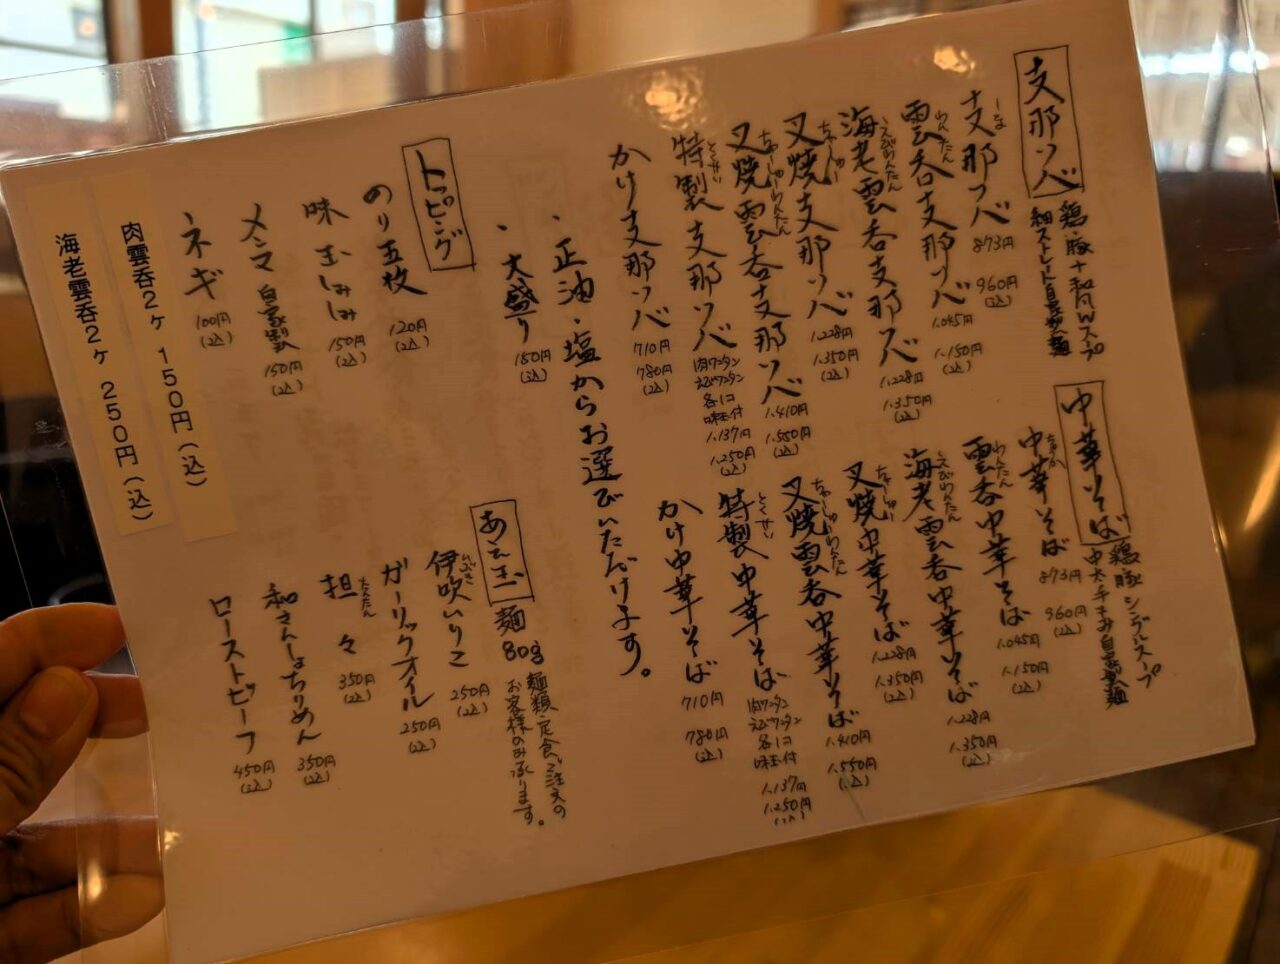 支那ソバ
鶏・豚+和風Wスープ
細ストレート自家製麺
支那ソバ 873円 960円(込)
わんたん
雲呑支那ソバ 1.045円 1.150円(込)
えびわんたん
海老雲呑支那ソバ 1.228円 1.350円(込)
ちゃーしゅー
叉焼支那ソバ 1.228円 1.350円(込)
ちゃーしゅーわんたん
叉焼雲呑支那ソバ 1.410円 1.550円(込)
とくせい
特製支那ソバ 肉ワンタン えびワンタン 各1コ 味玉付 1.137円 1.250円(込)
かけ支那ソバ 710円 780円(込)
中華そば
鶏豚シングルスープ
中太手もみ自家製麺
ちゅうか
中華そば 873円 960円(込)
わんたん
雲呑中華そば 1.045円 1.150円(込)
えびわんたん
海老雲呑中華そば 1.228円 1.350円(込)
ちゃーしゅー
叉焼中華そば 1.228円 1.350円(込)
ちゃーしゅーわんたん
叉焼雲呑中華そば 1.410円 1.550円(込)
とくせい
特製中華そば 肉ワンタン えびワンタン 各1コ 味玉付 1.137円 1.250円(込)
かけ中華そば 710円 780円(込)
・正油・塩からお選びいただけます。
・大盛り 150円(込)
トッピング
のり五枚 120円(込)
味玉しみしみ 150円(込)
メンマ 自家製 150円(込)
ネギ 100円(込)
肉雲呑2ヶ 150円(込)
海老雲呑2ヶ 250円(込)
あえ玉 麺80g
麺類・定食ご注文の
お客様のみ承ります。
いぶき
伊吹いりこ 250円(込)
ガーリックオイル 250円(込)
たんたん
担々 350円(込)
和さんしょちりめん 350円(込)
ローストビーフ 450円(込)